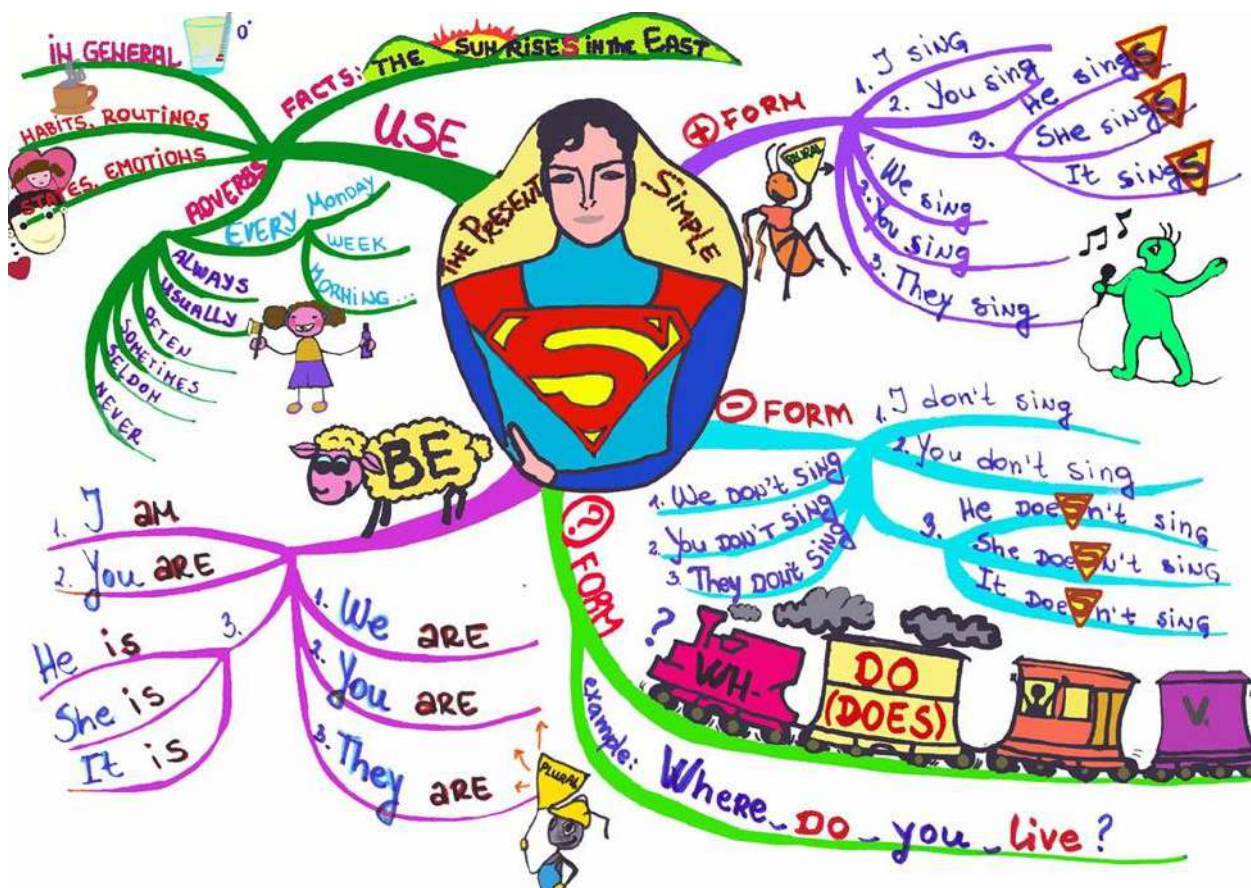 THE PRESENT SIMPLE
S
USE
FACTS: THE SUN RISES in the EAST
IN GENERAL
0°
HABITS, ROUTINES
STATES, EMOTIONS
ADVERBS
EVERY Monday
WEEK
MORNING...
ALWAYS
USUALLY
OFTEN
SOMETIMES
SELDOM
NEVER
+ FORM
1. I SING
2. You sing
3.
He sings
She sings
It sings
PLURAL
1. We sing
2. You sing
3. They sing
- FORM
1. I don't sing
2. You don't sing
3.
He DOESn't sing
She DOESn't SING
It DoeSn't SING
1. We DON'T SING
2. You DON'T SING
3. They DON'T SING
? FORM
?
WH-
DO
(DOES)
V.
example: Where DO you live?
BE
1. I am
2. You are
3.
He is
She is
It is
1. We are
2. You are
3. They are
PLURAL